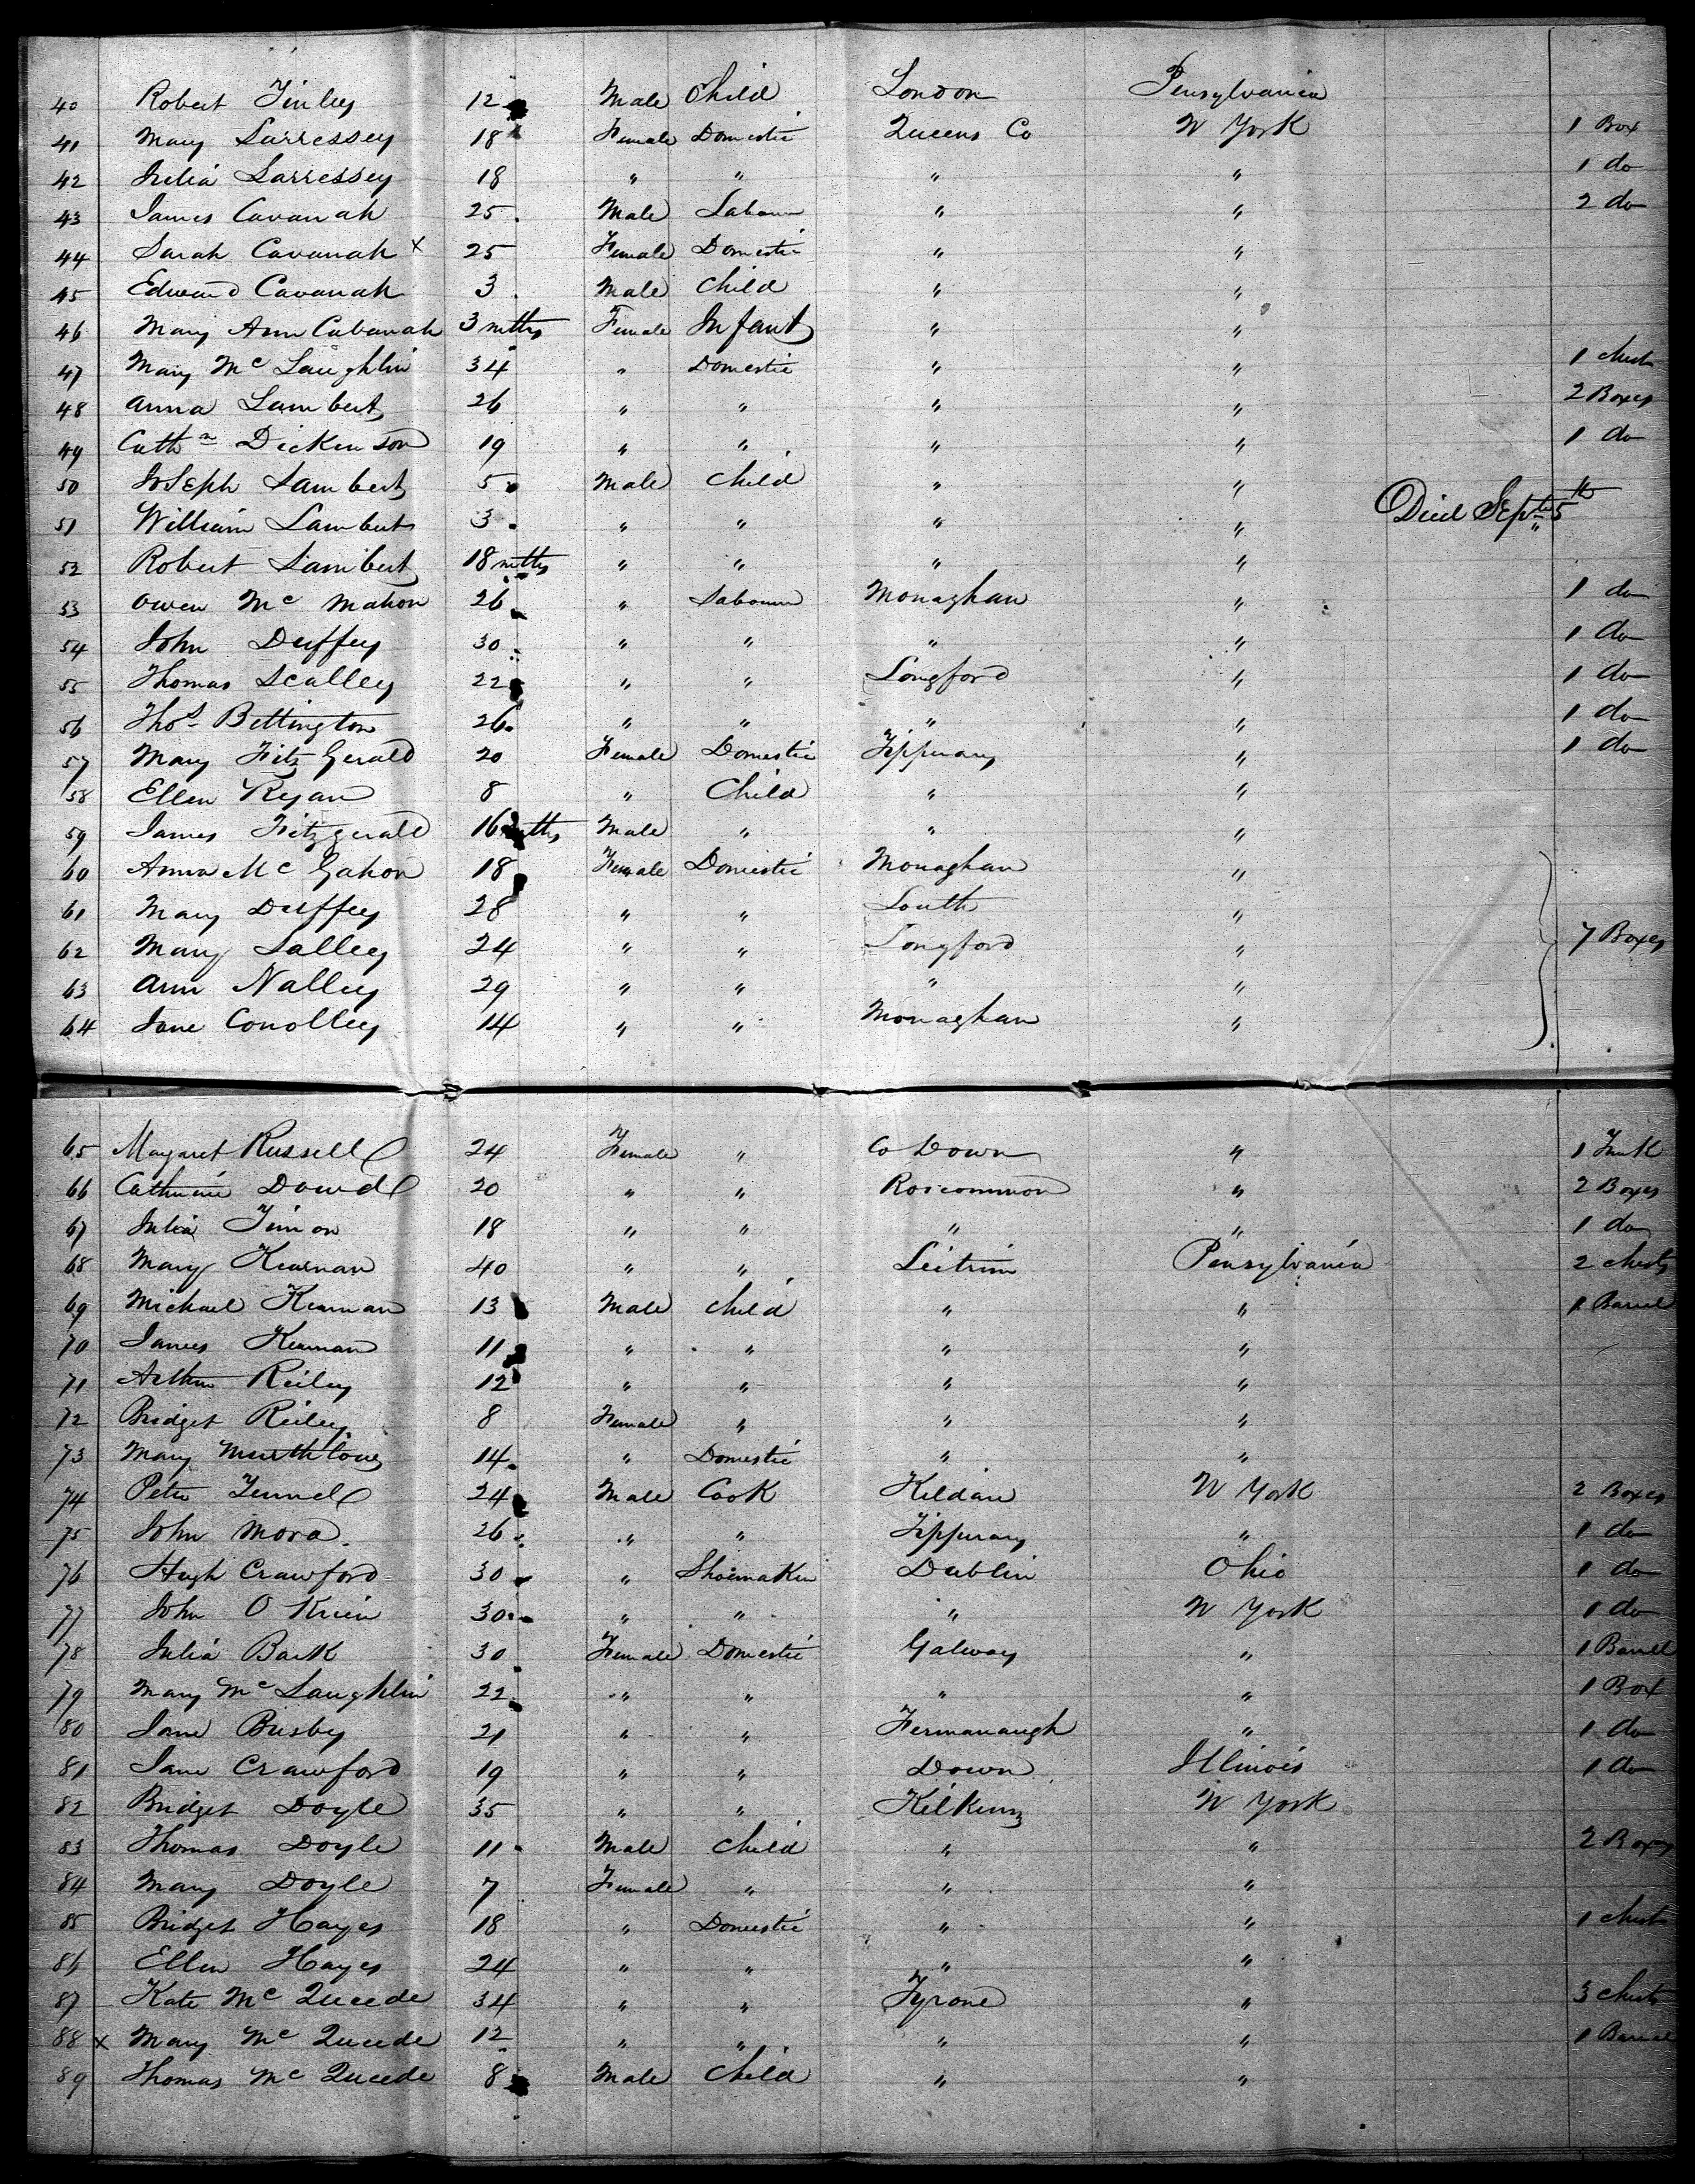 40 Robert Finley 12 Male Child London Pensylvania
41 Mary Larressey 18 Female Domestic Queens Co N York 1 Box
42 Julia Larressey 18 " " " " 1 do
43 James Cavanah 25 Male Labour " " 2 do
44 Sarah Cavanah x 25 Female Domestic " "
45 Edward Cavanah 3 Male Child " "
46 Mary Ann Cabanah 3 mths Female Infant " "
47 Mary Mc Laughlin 34 " Domestic " " 1 chest
48 Anna Lambert 26 " " " " 2 Boxes
49 Cathn Dickenson 19 " " " " 1 do
50 Joseph Lambert 5 Male Child " "
51 William Lambert 3 " " " " Died Septr 5th
52 Robert Lambert 18 mths " " " "
53 Owen Mc Mahon 26 " Labourer Monaghan " 1 do
54 John Duffey 30 " " " " 1 do
55 Thomas Scalley 22 " " Longford " 1 do
56 Thos Bettington 26 " " " " 1 do
57 Mary Fitz Gerald 20 Female Domestic Tipperary " 1 do
58 Ellen Ryan 8 " Child " "
59 James Fitzgerald 16 mths Male " " "
60 Anna Mc Gahon 18 Female Domestic Monaghan "
61 Mary Duffey 28 " " Louth "
62 Mary Lalley 24 " " Longford " 7 Boxes
63 Ann Nalley 29 " " " "
64 Jane Conolley 14 " " Monaghan "
65 Margaret Russell 24 Female " Co Down " 1 Trunk
66 Catherine Dowd 20 " " Roscommon " 2 Boxes
67 Julia Timon 18 " " " " 1 do
68 Mary Kearnan 40 " " Leitrim Pensylvania 2 chests
69 Michael Kearnan 13 Male child " " 1 Barrel
70 James Kearnan 11 " " " "
71 Arthur Reiley 12 " " " "
72 Bridget Reiley 8 Female " " "
73 Mary 14 " Domestic " "
74 Peter 24 Male Cook Kildare N York 2 Boxes
75 John Mora 26 " " Tipperary " 1 do
76 Hugh Crawford 30 " Shoemaker Dublin Ohio 1 do
77 John O 30 " " " N York 1 do
78 Julia Bark 30 Female Domestic Galway " 1 Barrel
79 Mary Mc Laughlin 22 " " " " 1 Box
80 Jane Busby 21 " " Fermanaugh " 1 do
81 Jane Crawford 19 " " Down Illinois 1 do
82 Bridget Doyle 35 " " Kilkenny N York
83 Thomas Doyle 11 Male Child " " 2 Boxes
84 Mary Doyle 7 Female " " "
85 Bridget Hayes 18 " Domestic " " 1 chest
86 Ellen Hayes 24 " " " "
87 Kate Mc Queede 34 " " Tyrone " 3 chests
88 x Mary Mc Queede 12 " " " " 1 Barrel
89 Thomas Mc Queede 8 Male Child " "